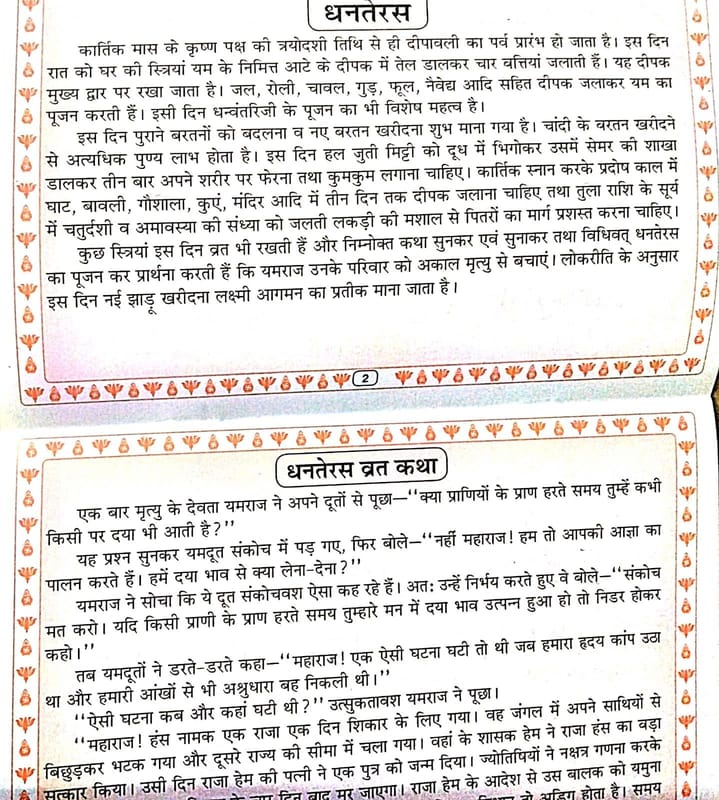 धनतेरस
कार्तिक मास के कृष्ण पक्ष की त्रयोदशी तिथि से ही दीपावली का पर्व प्रारंभ हो जाता है। इस दिन
रात को घर की स्त्रियां यम के निमित्त आटे के दीपक में तेल डालकर चार बत्तियां जलाती हैं। यह दीपक
मुख्य द्वार पर रखा जाता है। जल, रोली, चावल, गुड़, फूल, नैवेद्य आदि सहित दीपक जलाकर यम का
पूजन करती हैं। इसी दिन धन्वंतरिजी के पूजन का भी विशेष महत्व है।
इस दिन पुराने बरतनों को बदलना व नए बरतन खरीदना शुभ माना गया है। चांदी के बरतन खरीदने
से अत्यधिक पुण्य लाभ होता है। इस दिन हल जुती मिट्टी को दूध में भिगोकर उसमें सेमर की शाखा
डालकर तीन बार अपने शरीर पर फेरना तथा कुमकुम लगाना चाहिए। कार्तिक स्नान करके प्रदोष काल में
घाट, बावली, गौशाला, कुएं, मंदिर आदि में तीन दिन तक दीपक जलाना चाहिए तथा तुला राशि के सूर्य
में चतुर्दशी व अमावस्या की संध्या को जलती लकड़ी की मशाल से पितरों का मार्ग प्रशस्त करना चाहिए।
कुछ स्त्रियां इस दिन व्रत भी रखती हैं और निम्नोक्त कथा सुनकर एवं सुनाकर तथा विधिवत् धनतेरस
का पूजन कर प्रार्थना करती हैं कि यमराज उनके परिवार को अकाल मृत्यु से बचाएं। लोकरीति के अनुसार
इस दिन नई झाड़ू खरीदना लक्ष्मी आगमन का प्रतीक माना जाता है।
2
धनतेरस व्रत कथा
एक बार मृत्यु के देवता यमराज ने अपने दूतों से पूछा—‘‘क्या प्राणियों के प्राण हरते समय तुम्हें कभी
किसी पर दया भी आती है?’’
यह प्रश्न सुनकर यमदूत संकोच में पड़ गए, फिर बोले—‘‘नहीं महाराज! हम तो आपकी आज्ञा का
पालन करते हैं। हमें दया भाव से क्या लेना-देना?’’
यमराज ने सोचा कि ये दूत संकोचवश ऐसा कह रहे हैं। अतः उन्हें निर्भय करते हुए वे बोले—‘‘संकोच
मत करो। यदि किसी प्राणी के प्राण हरते समय तुम्हारे मन में दया भाव उत्पन्न हुआ हो तो निडर होकर
कहो।’’
तब यमदूतों ने डरते-डरते कहा—‘‘महाराज! एक ऐसी घटना घटी तो थी जब हमारा हृदय कांप उठा
था और हमारी आंखों से भी अश्रुधारा बह निकली थी।’’
‘‘ऐसी घटना कब और कहां घटी थी?’’ उत्सुकतावश यमराज ने पूछा।
‘‘महाराज! हंस नामक एक राजा एक दिन शिकार के लिए गया। वह जंगल में अपने साथियों से
बिछुड़कर भटक गया और दूसरे राज्य की सीमा में चला गया। वहां के शासक हेम ने राजा हंस का बड़ा
सत्कार किया। उसी दिन राजा हेम की पत्नी ने एक पुत्र को जन्म दिया। ज्योतिषियों ने नक्षत्र गणना करके
दिन बाद मर जाएगा। राजा हेम के आदेश से उस बालक को यमुना
होता है। समय